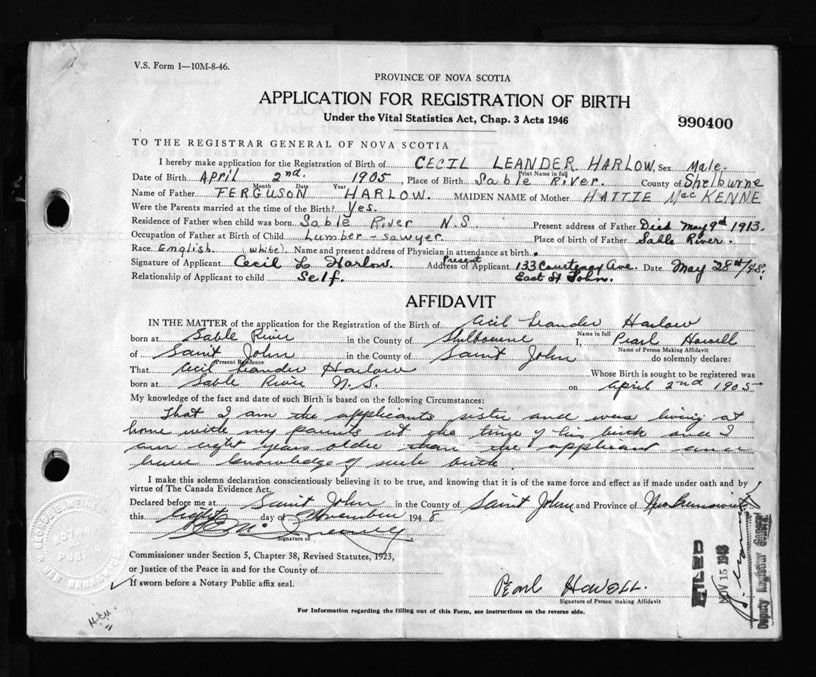 V.S. Form 1—10M-8-46.
PROVINCE OF NOVA SCOTIA
APPLICATION FOR REGISTRATION OF BIRTH
Under the Vital Statistics Act, Chap. 3 Acts 1946
990400
TO THE REGISTRAR GENERAL OF NOVA SCOTIA
I hereby make application for the Registration of Birth of CECIL LEANDER HARLOW Sex Male.
Print Name in full
Date of Birth April 2nd. 1905, Place of Birth Sable River. County of Shelburne
Month Date Year
Name of Father FERGUSON HARLOW. MAIDEN NAME of Mother HATTIE MacKENNE
Were the Parents married at the time of the Birth? Yes.
Residence of Father when child was born Sable River N.S. Present address of Father Died May 9th 1913.
Occupation of Father at Birth of Child Lumber - sawyer. Place of birth of Father Sable River.
Race English (white). Name and present address of Physician in attendance at birth
Signature of Applicant Cecil L Harlow. Present Address of Applicant 133 Courtenay Ave. Date May 28th/48.
Relationship of Applicant to child Self. East St John.
AFFIDAVIT
IN THE MATTER of the application for the Registration of Birth of Cecil Leander Harlow
Name in full
born at Sable River in the County of Shelbourne I, Pearl Howell
Name of Person Making Affidavit
of Saint John in the County of Saint John do solemnly declare:
Present Residence
That Cecil Leander Harlow Whose Birth is sought to be registered was
born at Sable River N.S. on April 2nd 1905
My knowledge of the fact and date of such Birth is based on the following Circumstances:
That I am the applicants sister and was living at
home with my parents at the time of his birth and I
am eight years older than the applicant and
have knowledge of such birth.
I make this solemn declaration conscientiously believing it to be true, and knowing that it is of the same force and effect as if made under oath and by
virtue of The Canada Evidence Act.
Declared before me at Saint John in the County of Saint John and Province of New Brunswick
this eighth day of November 1948
Signature of
Commissioner under Section 5, Chapter 38, Revised Statutes, 1923,
or Justice of the Peace in and for the County of
If sworn before a Notary Public affix seal.
Pearl Howell.
Signature of Person making Affidavit
FILED
NOV 15 1948
Deputy Registrar General
For Information regarding the filling out of this Form, see instructions on the reverse side.